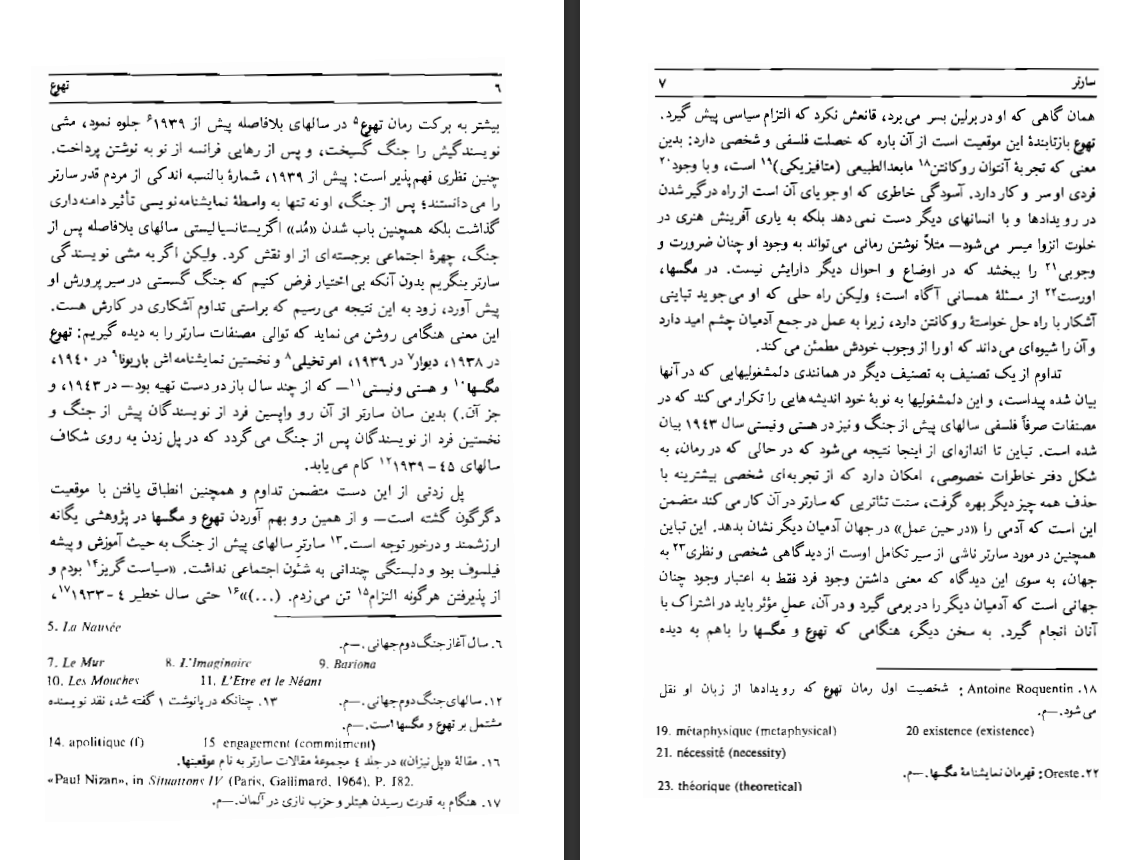 ۶ تهوع
بیشتر به برکت رمان تهوع۵ در سالهای بلافاصله پیش از ۱۹۳۹۶ جلوه نمود، مشی
نویسندگیش را جنگ گسیخت، و پس از رهایی فرانسه از نو به نوشتن پرداخت.
چنین نظری فهم‌پذیر است: پیش از ۱۹۳۹، شمارهٔ بالنسبه اندکی از مردم قدر سارتر
را می‌دانستند؛ پس از جنگ، او نه تنها به واسطهٔ نمایشنامه‌نویسی تأثیر دامنه‌داری
گذاشت بلکه همچنین باب شدن «مُد» اگزیستانسیالیستی سالهای بلافاصله پس از
جنگ، چهرهٔ اجتماعی برجسته‌ای از او نقش کرد. ولیکن اگر به مشی نویسندگی
سارتر بنگریم بدون آنکه بی‌اختیار فرض کنیم که جنگ گسستی در سیر پرورش او
پیش آورد، زود به این نتیجه می‌رسیم که براستی تداوم آشکاری در کارش هست.
این معنی هنگامی روشن می‌نماید که توالی مصنفات سارتر را به دیده گیریم: تهوع
در ۱۹۳۸، دیوار۷ در ۱۹۳۹، امر تخیلی۸ و نخستین نمایشنامه‌اش باریونا۹ در ۱۹۴۰،
مگسها۱۰ و هستی و نیستی۱۱— که از چند سال باز در دست تهیه بود— در ۱۹۴۳، و
جز آن.) بدین سان سارتر از آن رو واپسین فرد از نویسندگان پیش از جنگ و
نخستین فرد از نویسندگان پس از جنگ می‌گردد که در پل زدن به روی شکاف
سالهای ۴۵ - ۱۹۳۹۱۲ کام می‌یابد.
پل زدنی از این دست متضمن تداوم و همچنین انطباق یافتن با موقعیت
دگرگون گشته است— و از همین رو بهم آوردن تهوع و مگسها در پژوهشی یگانه
ارزشمند و درخور توجه است.۱۳ سارترِ سالهای پیش از جنگ به حیث آموزش و پیشه
فیلسوف بود و دلبستگی چندانی به شئون اجتماعی نداشت. «سیاست‌گریز۱۴ بودم و
از پذیرفتن هرگونه التزام۱۵ تن می‌زدم. (...)»۱۶ حتی سال خطیر ۴-۱۹۳۳۱۷،
5. La Nausée
۶. سال آغاز جنگ دوم جهانی.—م.
7. Le Mur 8. L'Imaginaire 9. Bariona
10. Les Mouches 11. L'Etre et le Néant
۱۲. سالهای جنگ دوم جهانی.—م. ۱۳. چنانکه در پانوشت ۱ گفته شد، نقد نویسنده
مشتمل بر تهوع و مگسها است.—م.
14. apolitique (f) 15 engagement (commitment)
۱۶. مقالهٔ «پل نیزان» در جلد ۴ مجموعهٔ مقالات سارتر به نام موقعیتها.
«Paul Nizan», in Situations IV (Paris, Gallimard, 1964), P. 182.
۱۷. هنگام به قدرت رسیدن هیتلر و حزب نازی در آلمان.—م.
سارتر ۷
همان گاهی که او در برلین بسر می‌برد، قانعش نکرد که التزام سیاسی پیش گیرد.
تهوع بازتابندهٔ این موقعیت است از آن باره که خصلت فلسفی و شخصی دارد: بدین
معنی که تجربهٔ آنتوان روکانتن۱۸ مابعدالطبیعی (متافیزیکی)۱۹ است، و با وجود۲۰
فردی او سر و کار دارد. آسودگی خاطری که او جویای آن است از راه درگیر شدن
در رویدادها و با انسانهای دیگر دست نمی‌دهد بلکه به یاری آفرینش هنری در
خلوت انزوا میسر می‌شود— مثلاً نوشتن رمانی می‌تواند به وجود او چنان ضرورت و
وجوبی۲۱ را ببخشد که در اوضاع و احوال دیگر دارایش نیست. در مگسها،
اورست۲۲ از مسئلهٔ همسانی آگاه است؛ ولیکن راه حلی که او می‌جوید تباینی
آشکار با راه حل خواستهٔ روکانتن دارد، زیرا به عمل در جمع آدمیان چشم امید دارد
و آن را شیوه‌ای می‌داند که او را از وجوب خودش مطمئن می‌کند.
تداوم از یک تصنیف به تصنیف دیگر در همانندی دلمشغولیهایی که در آنها
بیان شده پیداست، و این دلمشغولیها به نوبهٔ خود اندیشه‌هایی را تکرار می‌کند که در
مصنفات صرفاً فلسفی سالهای پیش از جنگ و نیز در هستی و نیستی سال ۱۹۴۳ بیان
شده است. تباین تا اندازه‌ای از اینجا نتیجه می‌شود که در حالی که در رمان، به
شکل دفتر خاطرات خصوصی، امکان دارد که از تجربه‌ای شخصی بیشترینه با
حذف همه چیز دیگر بهره گرفت، سنت تئاتریی که سارتر در آن کار می‌کند متضمن
این است که آدمی را «در حین عمل» در جهان آدمیان دیگر نشان بدهد. این تباین
همچنین در مورد سارتر ناشی از سیر تکامل اوست از دیدگاهی شخصی و نظری۲۳ به
جهان، به سوی این دیدگاه که معنی داشتن وجود فرد فقط به اعتبار وجود چنان
جهانی است که آدمیان دیگر را در برمی‌گیرد و در آن، عمل مؤثر باید در اشتراک با
آنان انجام گیرد. به سخن دیگر، هنگامی که تهوع و مگسها را باهم به دیده
۱۸. Antoine Roquentin: شخصیت اول رمان تهوع که رویدادها از زبان او نقل
می‌شود.—م.
19. métaphysique (metaphysical) 20 existence (existence)
21. nécessité (necessity)
۲۲. Oreste: قهرمان نمایشنامهٔ مگسها.—م.
23. théorique (theoretical)